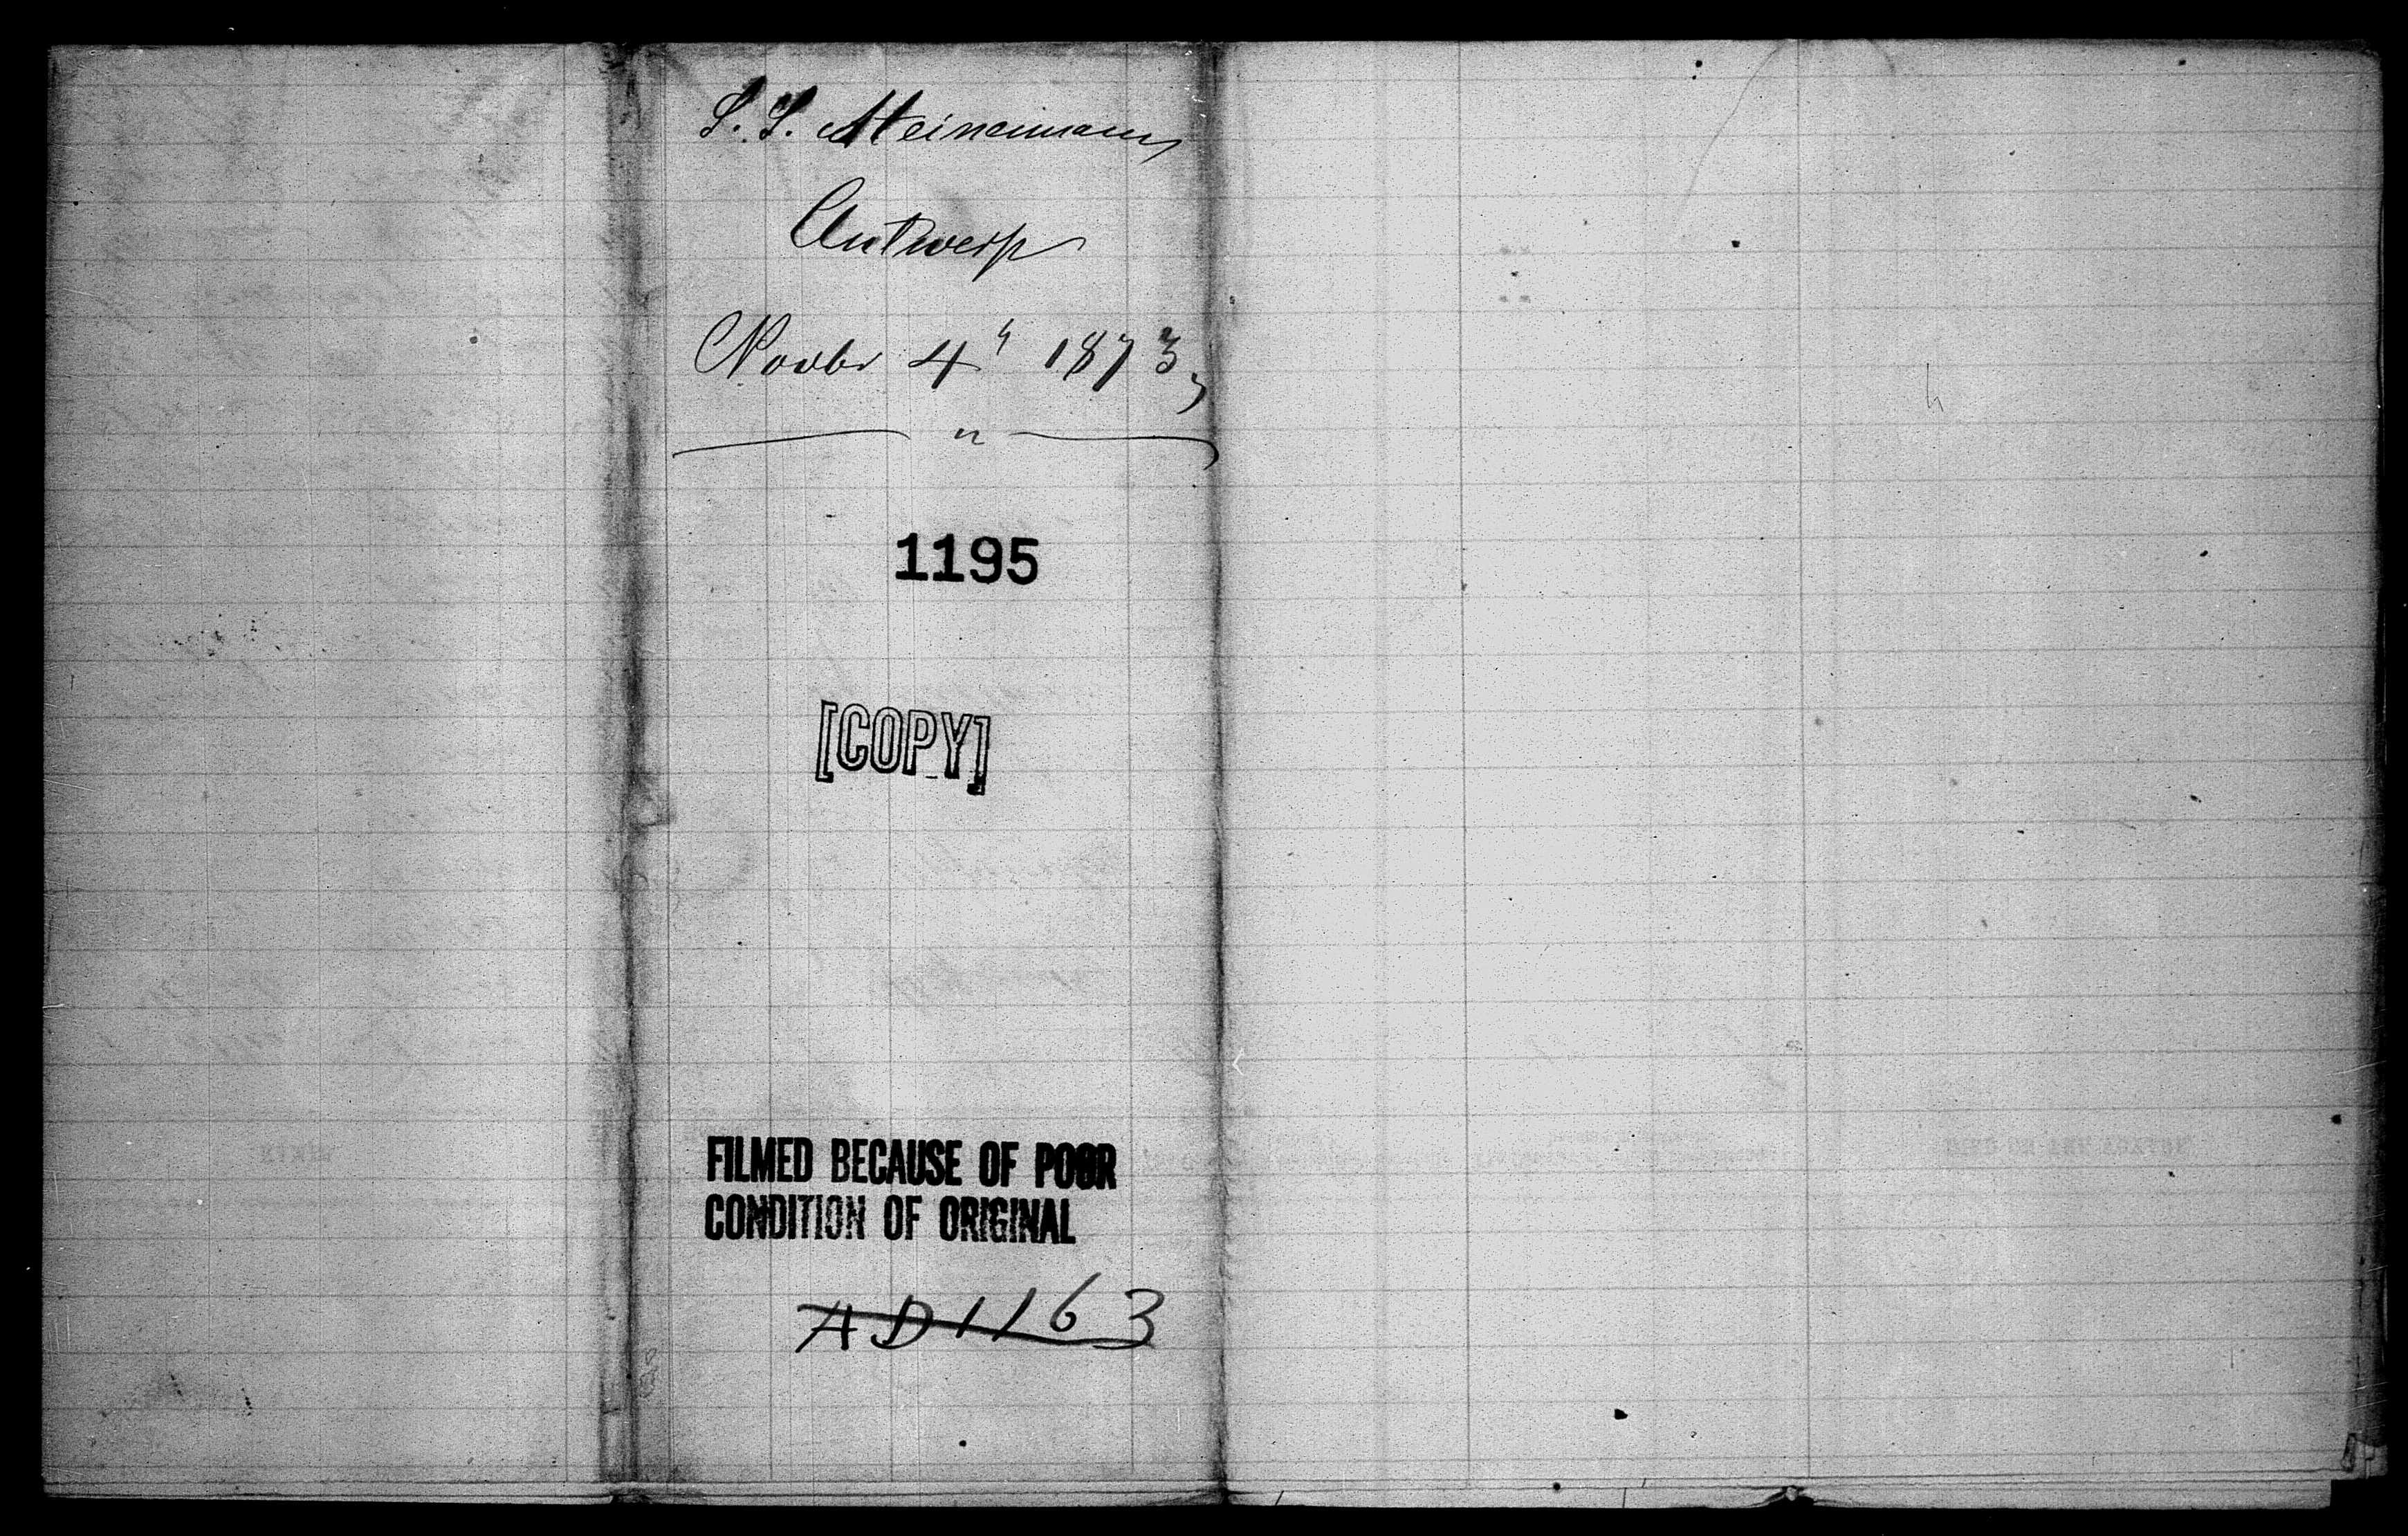 Antwerp
Novbr 4th 1873,
1195
[COPY]
FILMED BECAUSE OF POOR
CONDITION OF ORIGINAL
AD1163